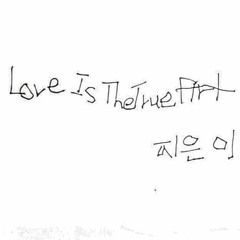 Love Is The True Art
지은이